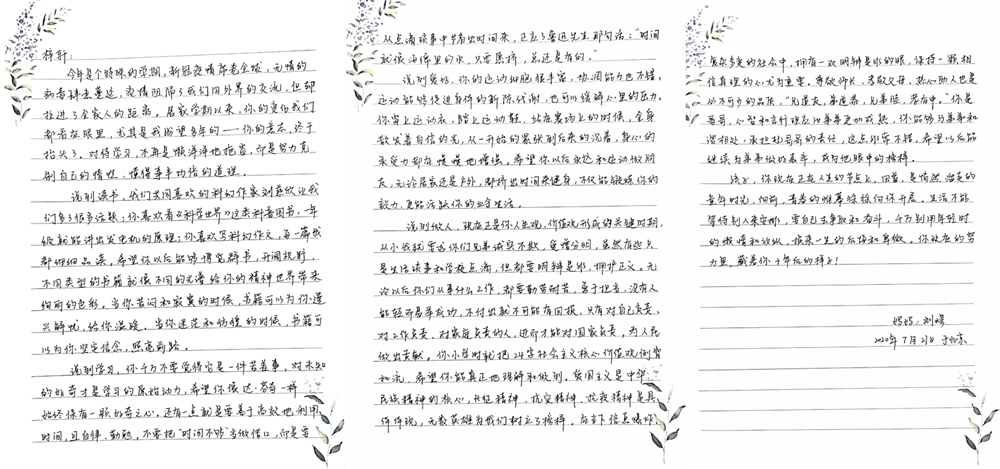 梓轩：
今年是个特殊的学期，新冠疫情席卷全球，无情的
新春料峭，疫情阻隔了我们同外界的交流，但却
拉进了全家人的距离。居家学期以来，你的变化我们
都看在眼里，尤其是我盼望多年的——你的意志，终于
抬头了。对待学习，不再是懒洋洋地拖沓，而是努力克
制自己的惰性，懂得事半功倍的道理。
说到读书，我们共同喜欢的科幻作家刘慈欣让我
们多了很多话题；你喜欢看《科学世界》这类科普图书，一年
级就能讲出发电机的原理；你喜欢写科幻作文，每一篇我
都细细品读。希望你以后能够博览群书，开阔视野，
不同类型的书籍就像不同的光谱给你的精神世界带来
绚丽的色彩。当你苦闷和寂寞的时候，书籍可以为你遣
兴解忧，给你温暖。当你迷茫和彷徨的时候，书籍可
以为你坚定信念，照亮前路。
说到学习，你千万不要觉得它是一件苦差事，对未知
的好奇才是学习的原始动力，希望你像达·芬奇一样
始终保有一颗好奇之心。还有一点就是要善于高效地利用
时间，且自律、勤勉，不要把“时间不够”当做借口，而是要
从点滴琐事中节省出时间来，正应了鲁迅先生那句话：“时间
就像海绵里的水，只要愿挤，总还是有的。”
说到爱好，你的运动细胞很丰富，协调能力也不错，
运动能够促进身体的新陈代谢，也可以缓解心里的压力。
你穿上运动衣，踏上运动鞋，站在赛场上的时候，全身
散发着自信的光，从一开始的紧张到后来的沉着，身心的
承受力都在慢慢地增强。希望你以后永远和运动做朋
友，无论居家还是户外，都挤出时间来健身，不仅能锻炼你的
毅力，更能活跃你的业余生活。
说到做人，现在正是你人生观、价值观形成的关键时期，
从小我就要求你们兄弟诚实不欺，爱憎分明，虽然有些只
是生活琐事和学校点滴，但都要明辨是非，拥护正义。无
论以后你们从事什么工作，都要勤劳耐苦，勇于担当，没有人
能轻而易举成功，不付出就不可能有回报，只有对自己负责、
对工作负责、对家庭负责的人，进而才能对国家负责，为人民
做出贡献。你小学时就把24字社会主义核心价值观倒背
如流，希望你能真正地理解和做到。爱国主义是中华
民族精神的核心，长征精神、抗震精神、抗疫精神是具
体体现，无数英雄为我们树立了榜样。在当下信息爆炸、
复杂多变的社会中，拥有一双明辨是非的眼，保持一颗相
信真理的心尤为重要。尊敬师长、孝敬父母、热心助人也是
必不可少的品质，“兄道友，弟道恭，兄弟睦，孝在中。”你是
哥哥，心智和言行理应比弟弟更加成熟，你能够与弟弟和
谐相处，承担起哥哥的责任，这点非常不错，希望以后能
继续为弟弟做好表率，成为他眼中的榜样。
孩子，你现在正在人生的节点上，回首，是悄然溜走的
童年时光，向前，青春的帷幕徐徐向你开展，生活不能
等待别人来安排，要自己去争取和奋斗，千万别用年轻时
的懒惰和放纵，换来一生的后悔和卑微。你现在的努
力里，藏着你十年后的样子！
妈妈：刘
2020年7月21日 于北京